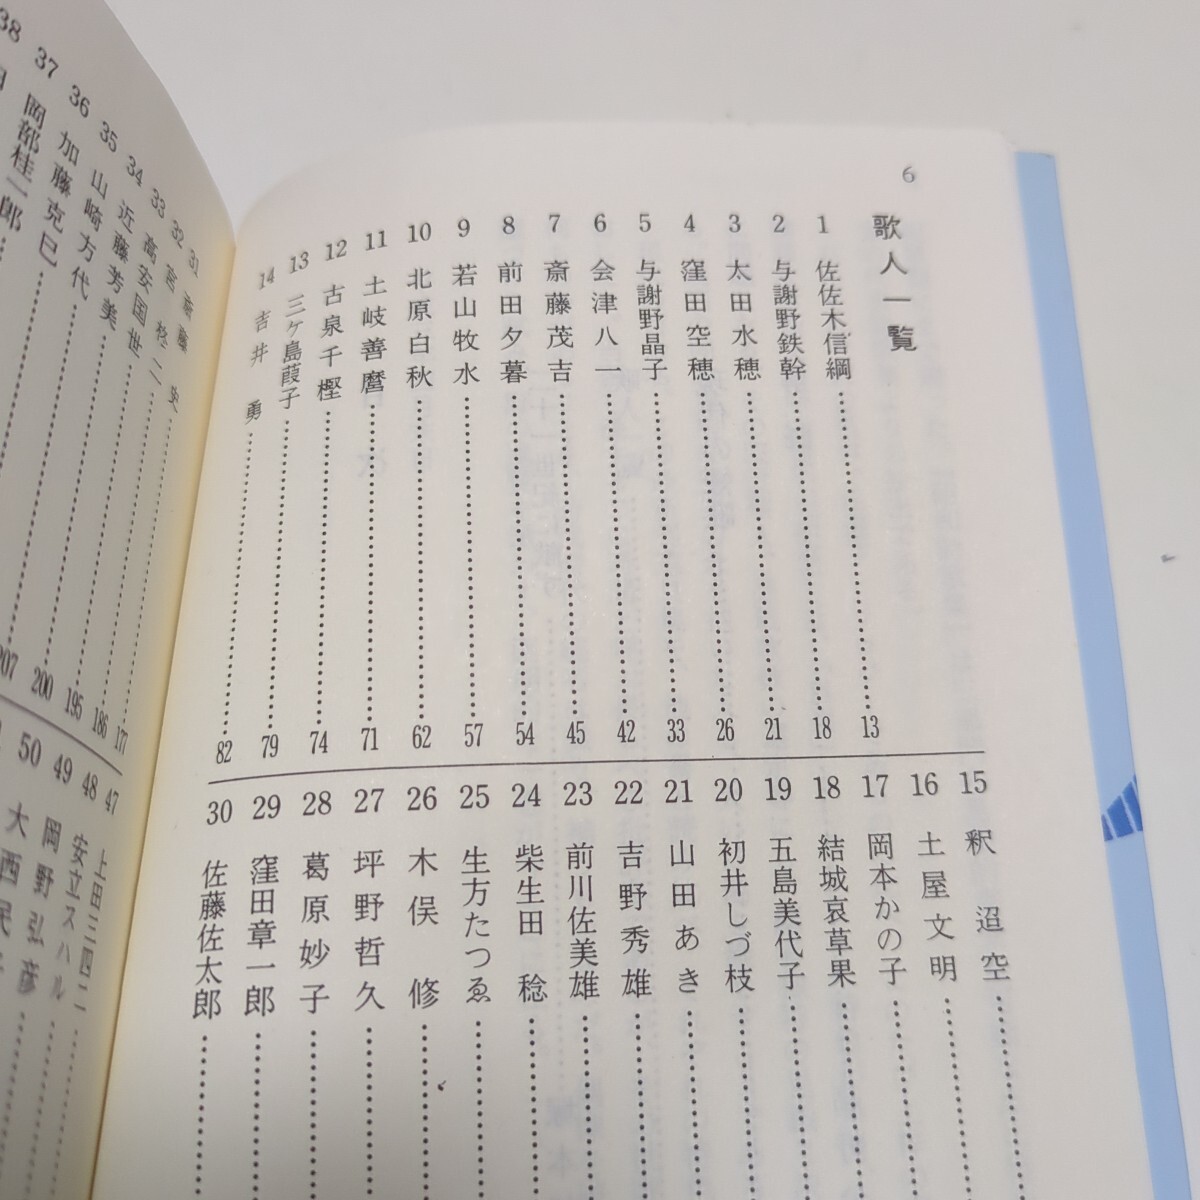 6
歌人一覧
1 佐佐木信綱 13
2 与謝野鉄幹 18
3 太田水穂 21
4 窪田空穂 26
5 与謝野晶子 33
6 会津八一 42
7 斎藤茂吉 45
8 前田夕暮 54
9 若山牧水 57
10 北原白秋 62
11 土岐善麿 71
12 古泉千樫 74
13 三ケ島葭子 79
14 吉井勇 82
15 釈迢空
16 土屋文明
17 岡本かの子
18 結城哀草果
19 五島美代子
20 初井しづ枝
21 山田あき
22 吉野秀雄
23 前川佐美雄
24 柴生田稔
25 生方たつゑ
26 木俣修
27 坪野哲久
28 葛原妙子
29 窪田章一郎
30 佐藤佐太郎
31 斎藤史 177
32 宮柊二 186
33 高安国世 195
34 近藤芳美 200
35 山崎方代 207
36 加藤克巳
37 岡部桂一郎
38
47 上田三四二
48 安立スハル
49 岡野弘彦
50 大西民子